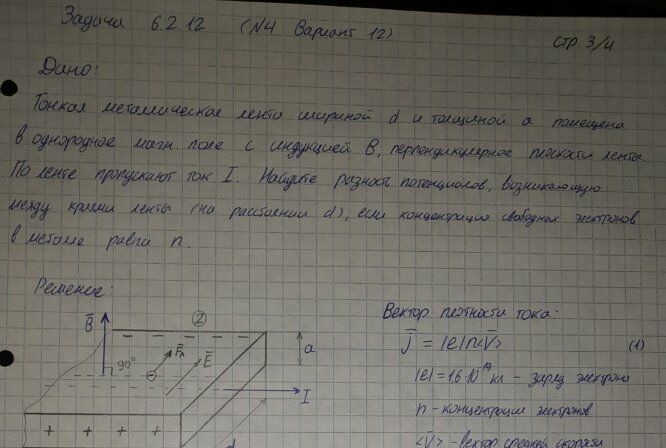 Задача 6.2.12 (N4 Вариант 12)
стр. 3/4
Дано:
Тонкая металлическая лента шириной d и толщиной a помещена
в однородное магн. поле с индукцией B, перпендикулярное плоскости ленты.
По ленте пропускают ток I. Найдите разность потенциалов, возникающую
между краями ленты (на расстоянии d), если концентрация свободных электронов
в метале равна n.
Решение:
Вектор плотности тока:
②
B̄
j̄ = |e|n<V̄> (1)
90°
F̄л
Ē
a
|e| = 1,6·10⁻¹⁹ кл – заряд электрона
I
n – концентрация электронов
+ + + +
d
<V̄> – вектор средней скорости